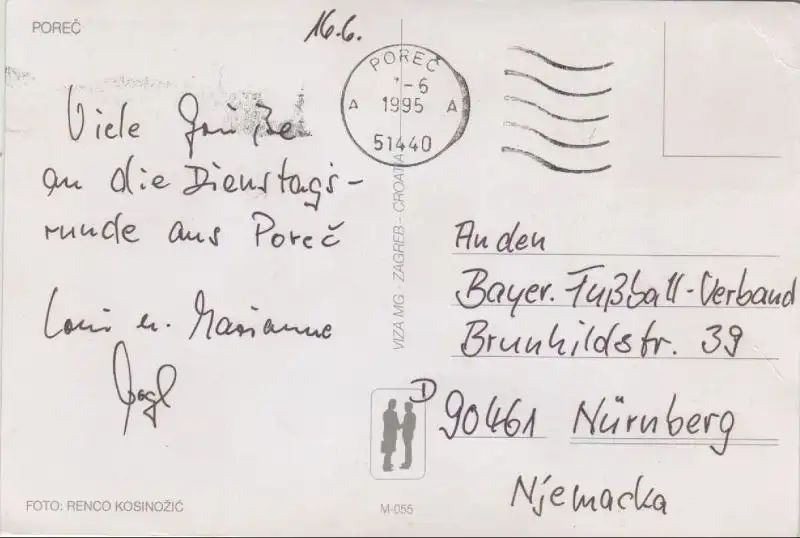 POREČ
16.6.
Viele Grüße
an die Dienstags-
runde aus Poreč
u. Marianne
Vogl
POREČ
-6
A 1995 A
51440
VIZA MG - ZAGREB - CROATIA
An den
Bayer. Fußball-Verband
Brunhildstr. 39
D 90461 Nürnberg
Njemacka
FOTO: RENCO KOSINOŽIĆ
M-055